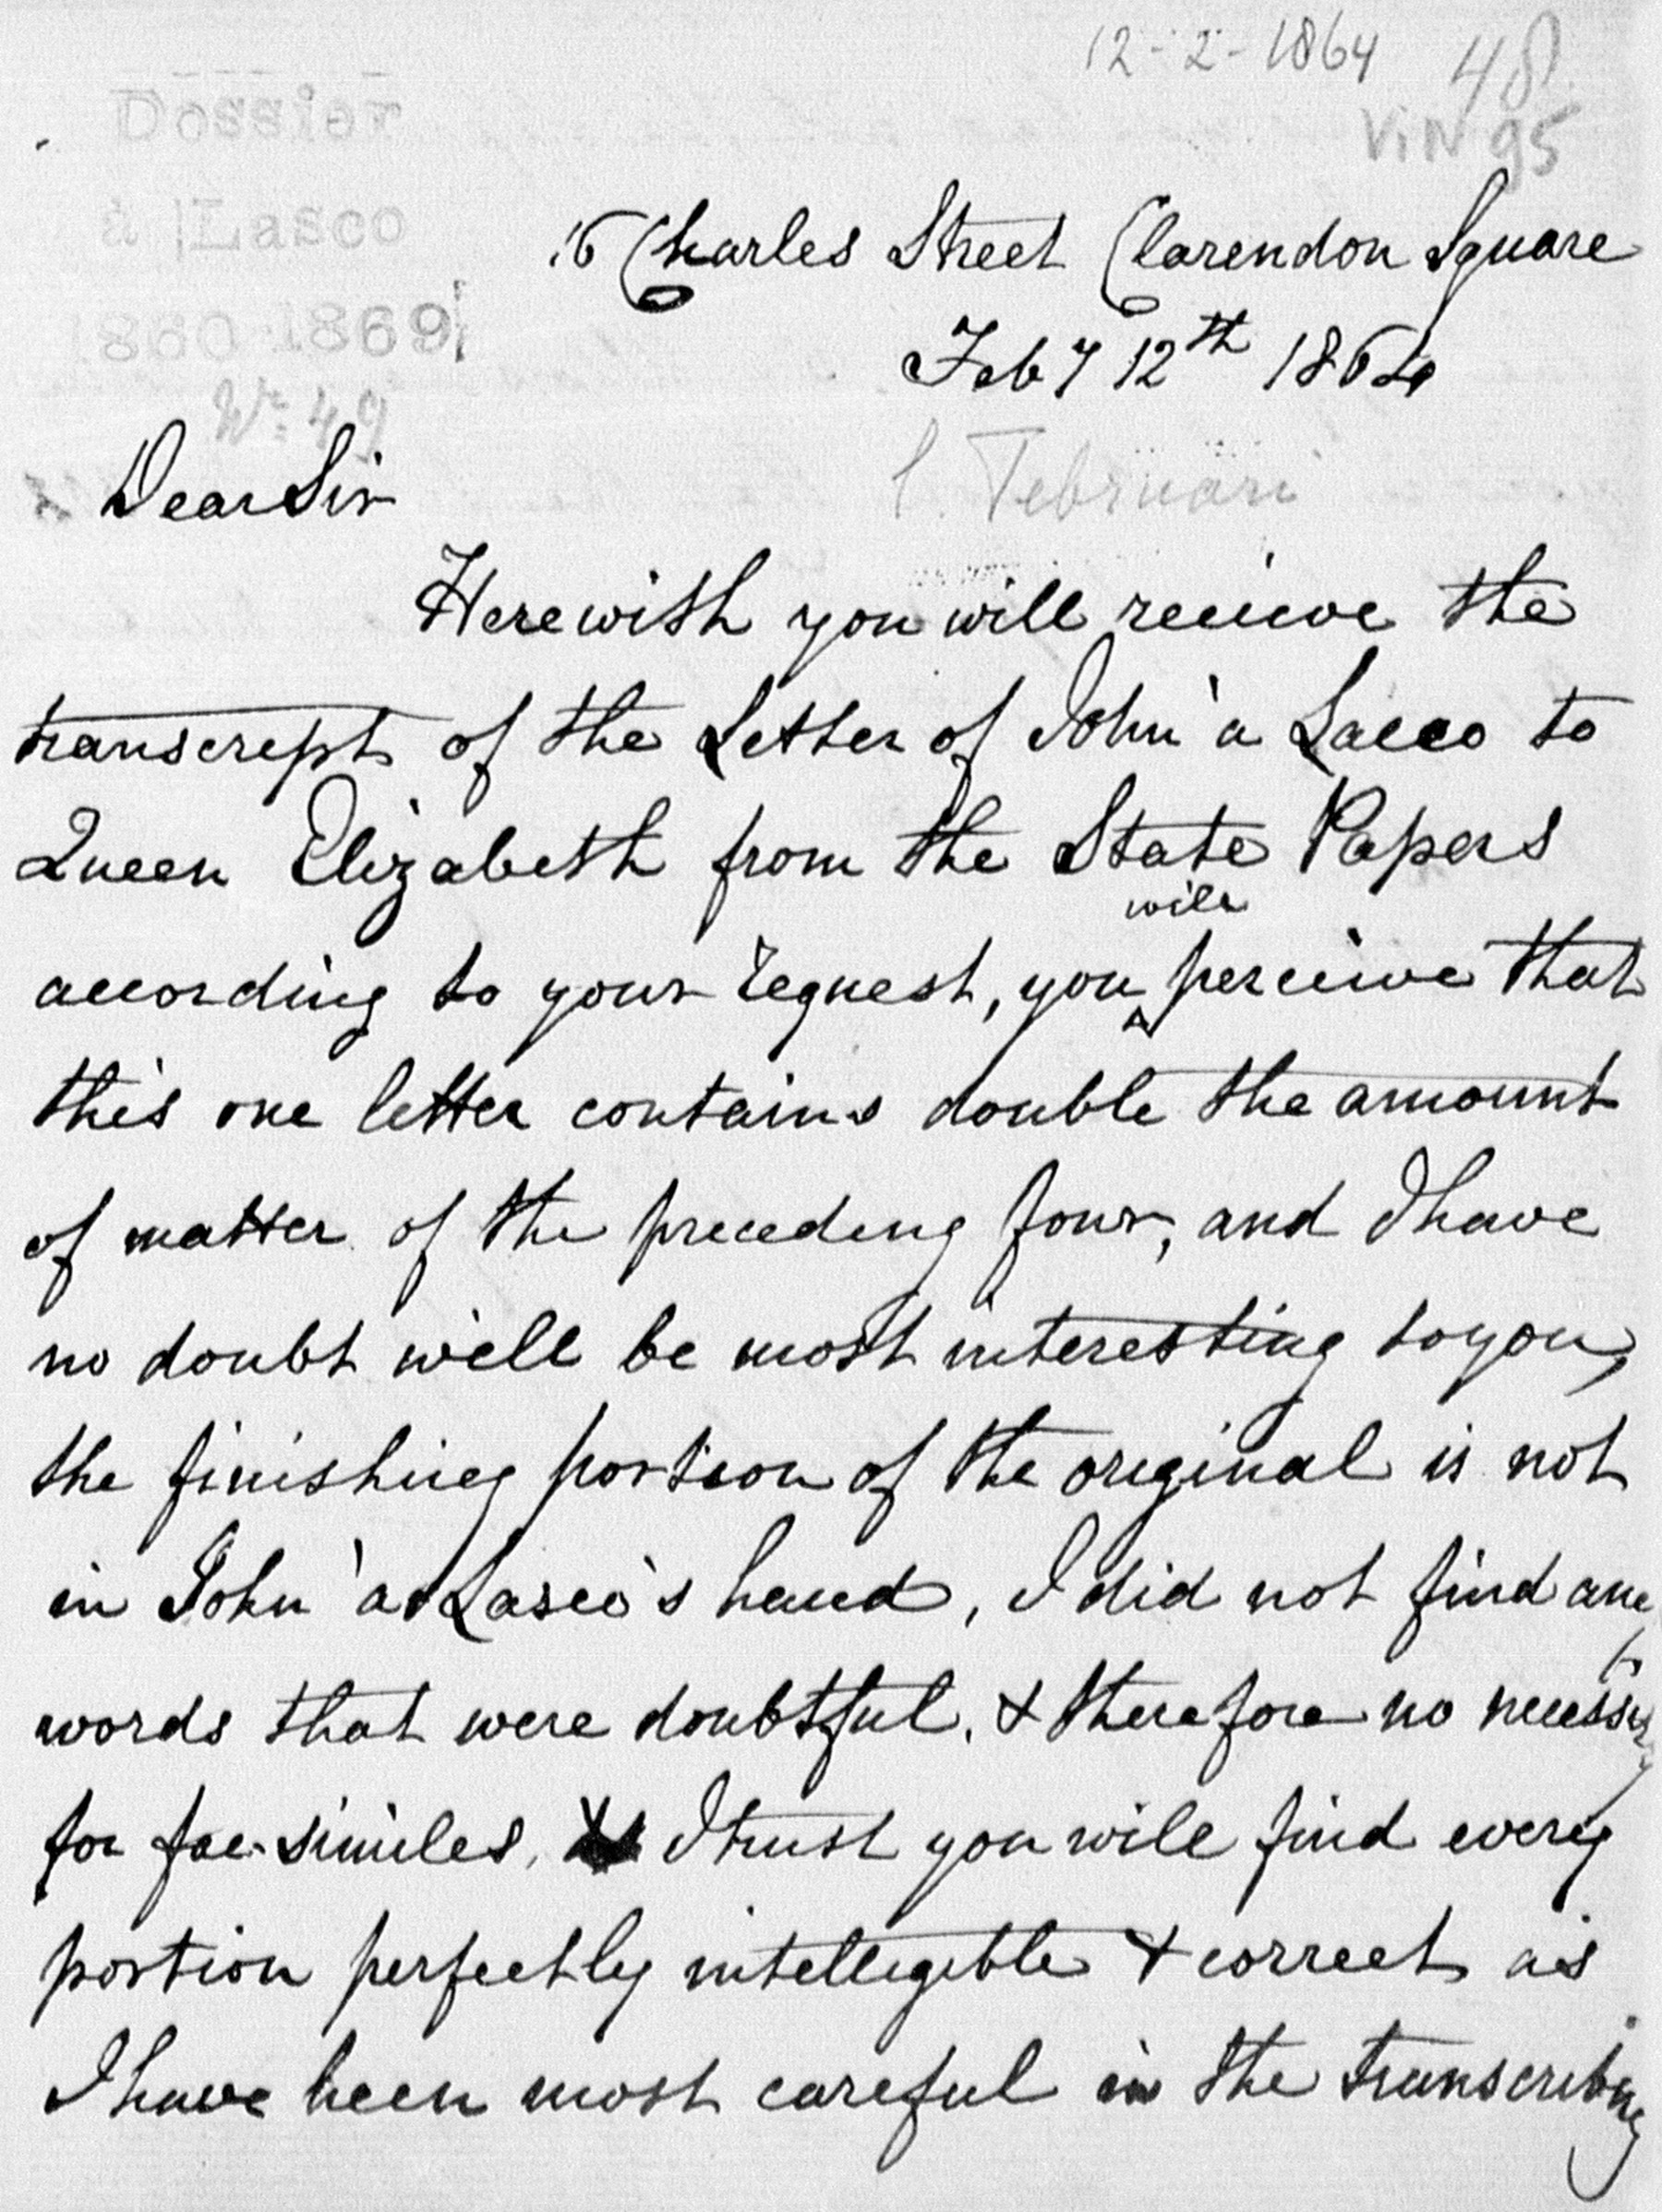 12-2-1864
48
VIN 95
Dossier
à Lasco
1860-1869
Nr. 49
16 Charles Street Clarendon Square
Feby 12th 1864
Februari
Dear Sir
Herewith you will receive the
transcript of the Letter of John à Lasco to
Queen Elizabeth from the State Papers
according to your request, you will perceive that
this one letter contains double the amount
of matter of the preceding four, and I have
no doubt will be most interesting to you,
the finishing portion of the original is not
in John à Lasco's hand, I did not find any
words that were doubtful, & therefore no necessity
for fac-similes, I trust you will find every
portion perfectly intelligible & correct as
I have been most careful in the transcribing